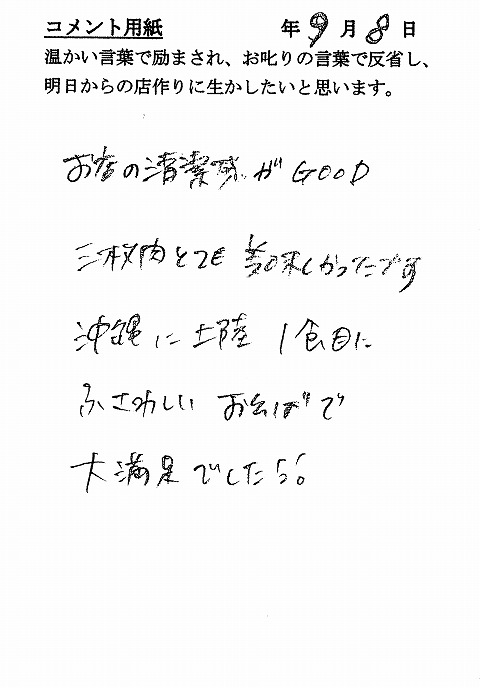 コメント用紙 年9月8日
温かい言葉で励まされ、お叱りの言葉で反省し、
明日からの店作りに生かしたいと思います。
お店の清潔感がGOOD
三枚肉とても美味しかったです
沖縄に上陸 1食目に
ふさわしい おそばで
大満足でした